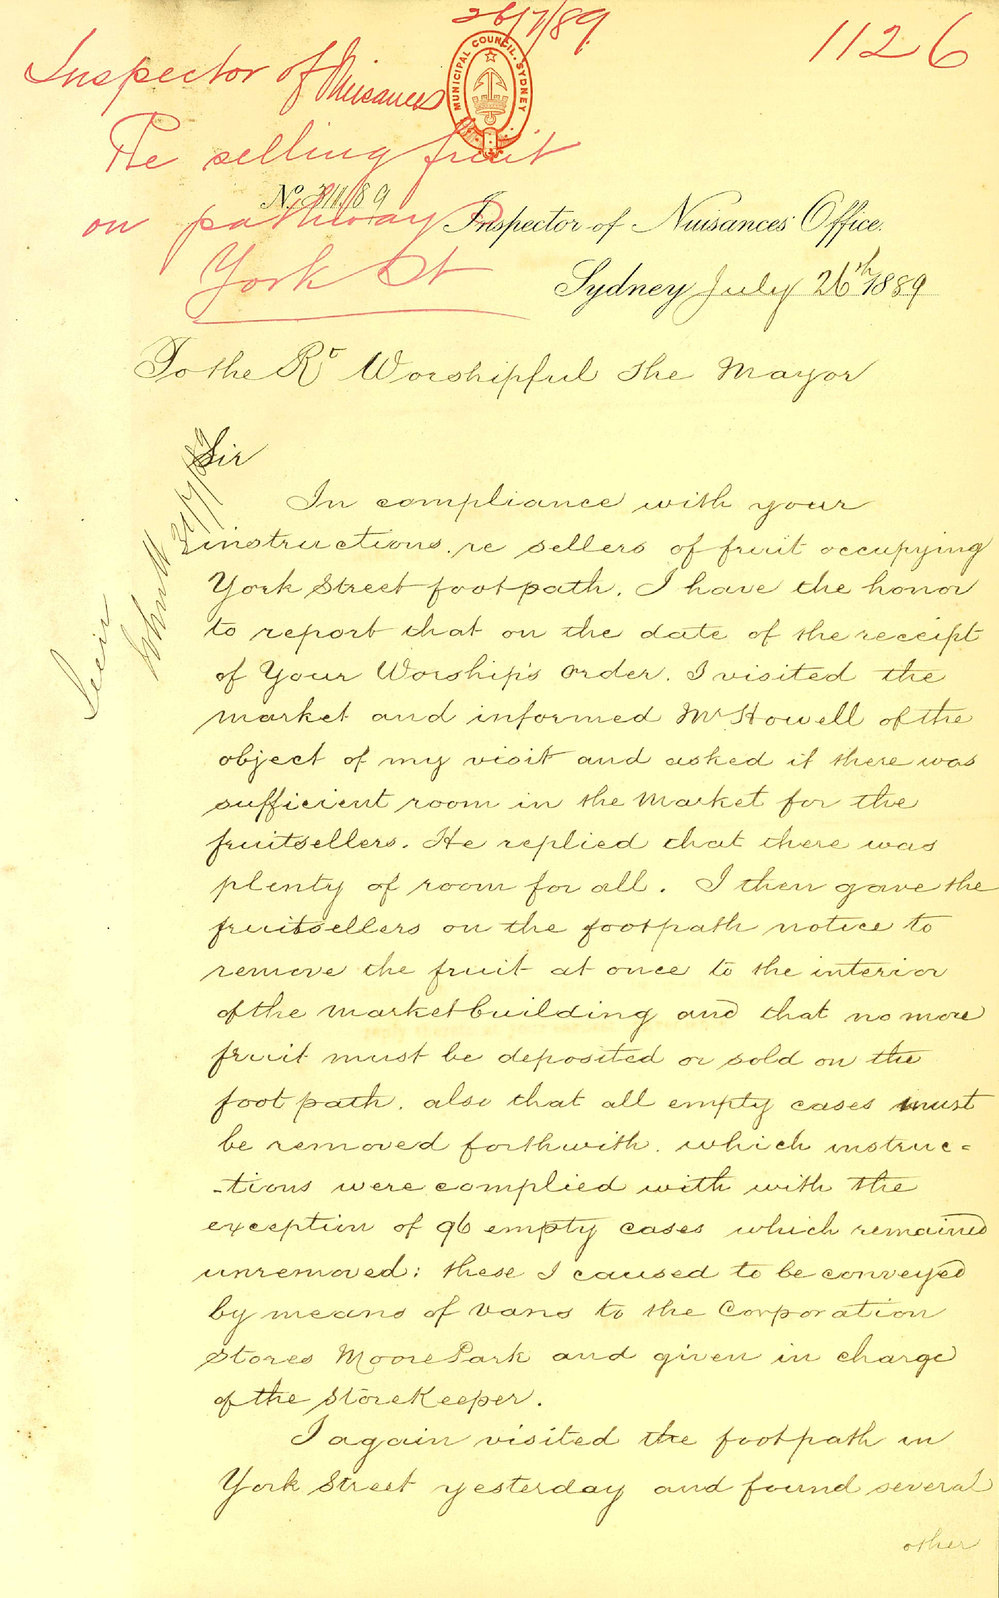 26/7/89.
1126
Inspector of Nuisances
MUNICIPAL COUNCIL. SYDNEY
Re selling fruit
on pathway
York St
No. 311/89
Inspector of Nuisances' Office.
Sydney July 26th 1889
To the Rt Worshipful the Mayor
Sir
In compliance with your
instructions. re sellers of fruit occupying
York Street footpath. I have the honor
to report that on the date of the receipt
of Your Worship's order. I visited the
market and informed Mr Howell of the
object of my visit and asked if there was
sufficient room in the Market for the
fruitsellers. He replied that there was
plenty of room for all. I then gave the
fruitsellers on the footpath notice to
remove the fruit at once to the interior
of the market building and that no more
fruit must be deposited or sold on the
foot path. also that all empty cases must
be removed forthwith. which instruc=
-tions were complied with with the
exception of 96 empty cases which remained
unremoved: these I caused to be conveyed
by means of vans to the Corporation
Stores Moore Park and given in charge
of the Storekeeper.
I again visited the footpath in
York Street yesterday and found several
other
Seen